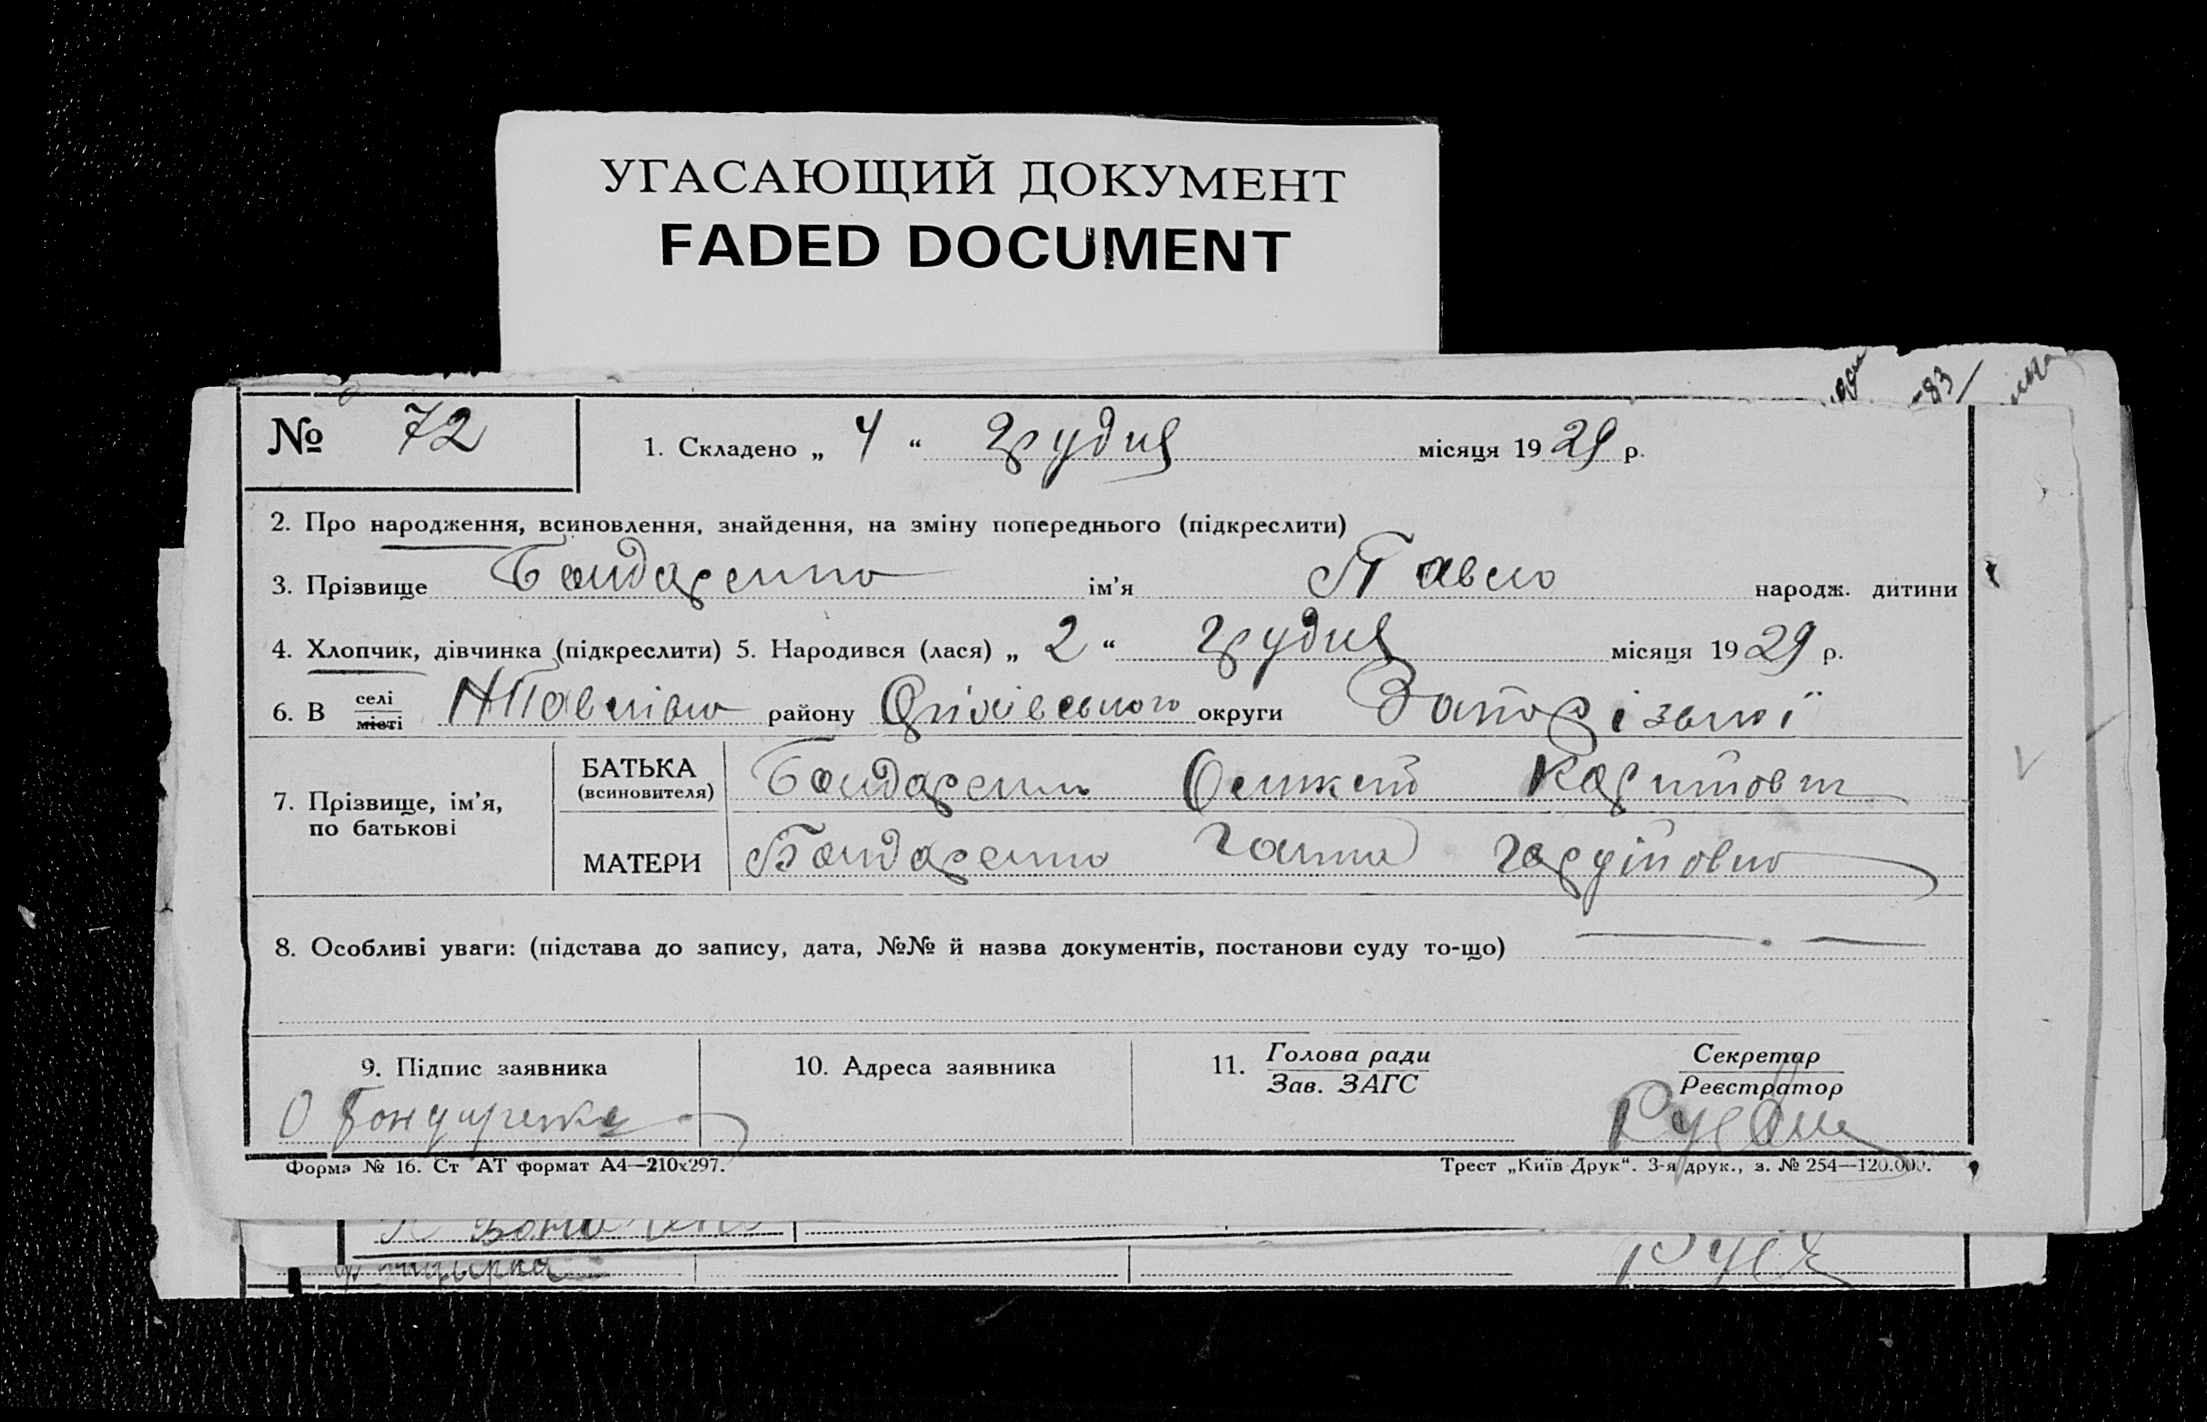 УГАСАЮЩИЙ ДОКУМЕНТ
FADED DOCUMENT
83
№ 72
1. Складено „ 4 “ грудня місяця 1929 р.
2. Про народження, всиновлення, знайдення, на зміну попереднього (підкреслити)
3. Прізвище Бондаренко ім’я Павло народж. дитини
4. Хлопчик, дівчинка (підкреслити) 5. Народився (лася) „ 2 “ грудня місяця 1929 р.
6. В селі місті НПавлівка району Оріхівського округи Запорізької
7. Прізвище, ім’я, по батькові
БАТЬКА (всиновителя) Бондаренко Карпович
МАТЕРИ Бондаренко Ганна
8. Особливі уваги: (підстава до запису, дата, №№ й назва документів, постанови суду то-що)
9. Підпис заявника
10. Адреса заявника
11. Голова ради
Зав. ЗАГС
Секретар
Реєстратор
О Бондаренко
Форма № 16. Ст АТ формат А4—210х297.
Трест „Київ-Друк“. 3-я друк., з. № 254—120.000.